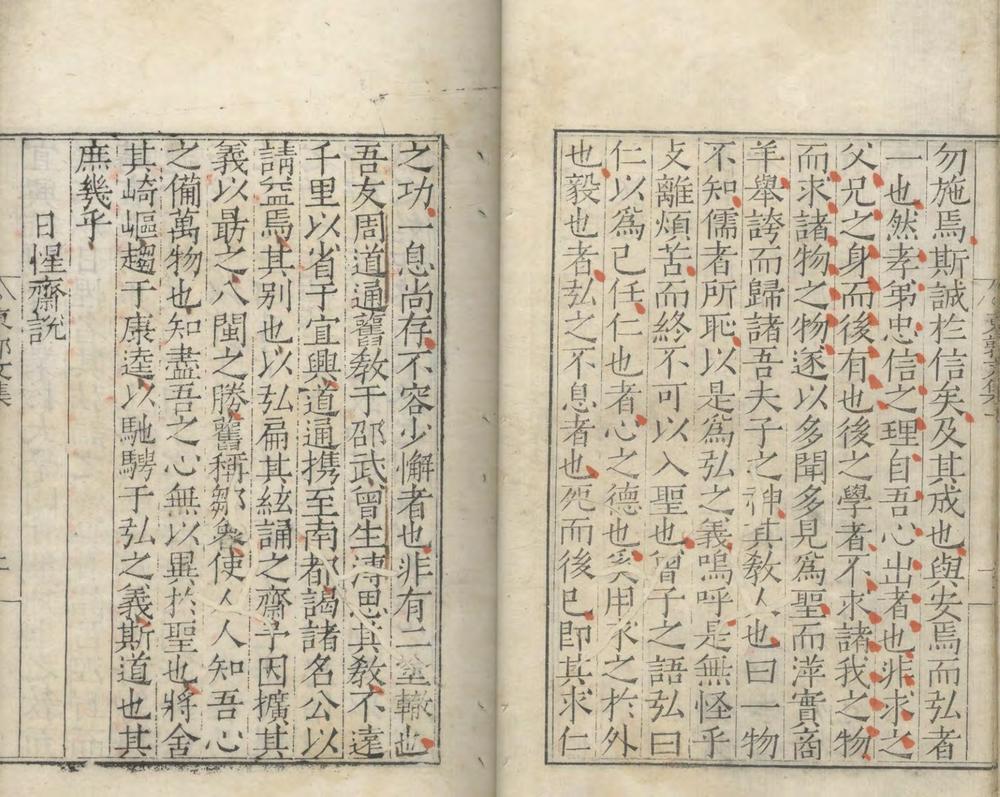 勿施焉斯誠於信矣及其成也與安焉而弘者
一也然孝弟忠信之理自吾心出者也非求之
父兄之身而後有也後之學者不求諸我之物
而求諸物之物遂以多聞多見爲聖而萍實商
羊舉誇而歸諸吾夫子之神其教人也曰一物
不知儒者所恥以是爲弘之義嗚呼是無怪乎
支離煩苦而終不可以入聖也曾子之語弘曰
仁以爲己任仁也者心之德也奚用求之於外
也毅也者弘之不息者也死而後已即其求仁
之功一息尚存不容少懈者也非有二塗轍也
吾友周道通舊教于邵武曾生溥思其教不遠
千里以省于宜興道通携至南都謁諸名公以
請益焉其别也以弘扁其絃誦之齋予因擴其
義以勗之八閩之勝舊稱鄒魯使人人知吾心
之備萬物也知盡吾之心無以異於聖也將舍
其崎嶇趨于康逵以馳騁于弘之義斯道也其
庶幾乎
日惺齋說